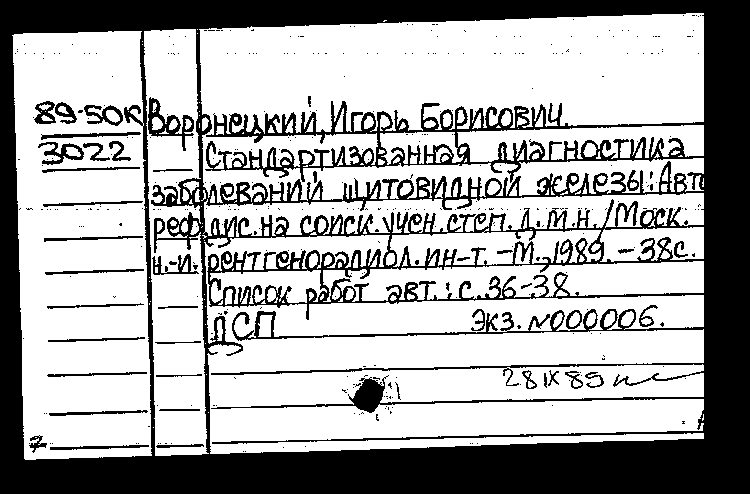 89-50К Воронецкий, Игорь Борисович.
3022 Стандартизованная диагностика
заболеваний щитовидной железы: Авто
реф. дис. на соиск. учен. степ. д.м.н. / Моск.
н.-и. рентгенорадиол. ин-т. - М., 1989. - 38с.
Список работ авт.: с.36-38.
ДСП Экз. №000006.
28 IX 89
7